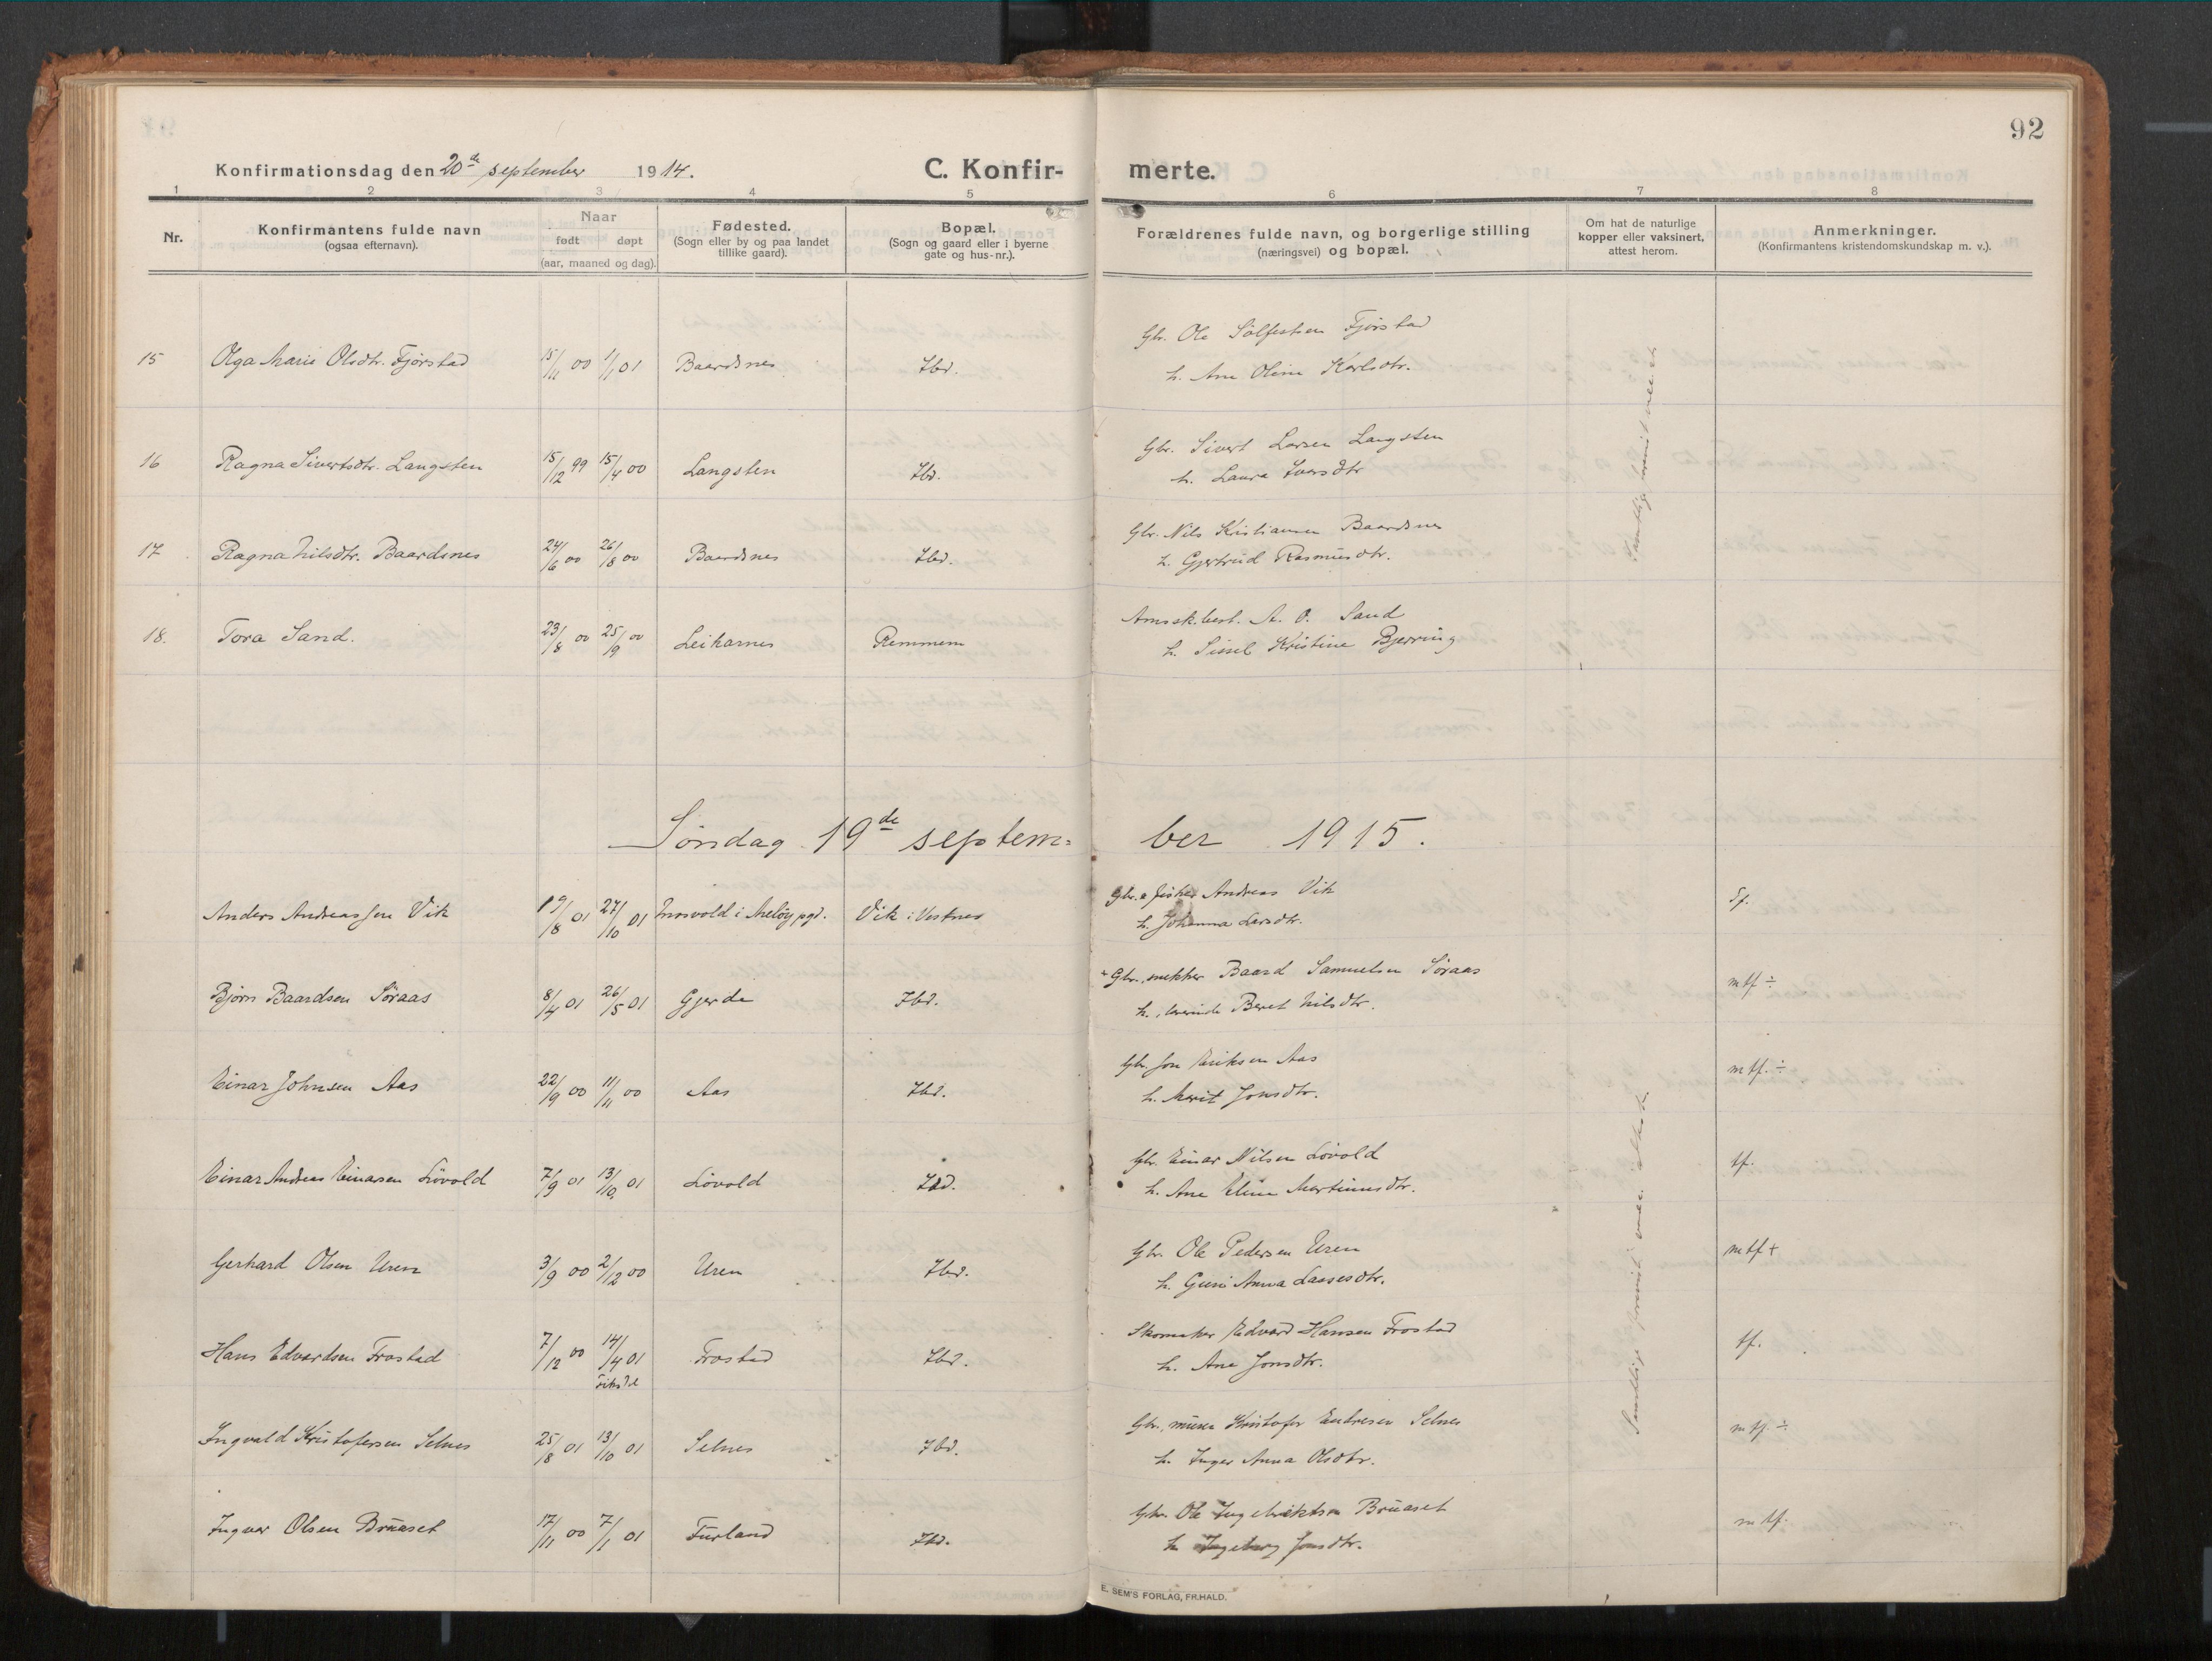 92
Konfirmationsdag den 20de september 1914. C. Konfirmerte.
1 2 3 4 5 6 7 8
Nr.
Konfirmantens fulde navn
(ogsaa efternavn).
Naar
født døpt
(aar, maaned og dag).
Fødested.
(Sogn eller by og paa landet
tillike gaard).
Bopæl.
(Sogn og gaard eller i byerne
gate og hus-nr.).
Forældrenes fulde navn, og borgerlige stilling
(næringsvei) og bopæl.
Om hat de naturlige
kopper eller vaksinert,
attest herom.
Anmerkninger.
(Konfirmantens kristendomskundskap m. v.).
Gbr. Ole Sølfestsen Fjørstad
15 Olga Marie Olsdtr. Fjørstad 15/11 00 1/1 01 Baardsnes Ibd.
h. Ane Oline Karlsdtr.
Gbr. Sivert Larsen Langsten
16 Ragna Sivertsdtr. Langsten 15/12 99 15/4 00 Langsten Ibd.
h. Laura Iversdtr
Gbr. Nils Kristiansen Baardsnes
17 Ragna Nilsdtr. Baardsnes 24/6 00 26/8 00 Baardsnes Ibd.
h. Gjertrud Rasmusdtr.
Amssk.best. A. O. Sand
18. Tora Sand. 23/8 00 25/9 00 Leikarnes Remmem
h. Sissel Kristine Bjerring
Søndag 19de september 1915.
Gbr. & fisker Andreas Vik
Anders Andreassen Vik 19/8 01 27/10 01 i Meløy pgd. Vik i Vestnes Sf.
h. Johanna Larsdtr.
Gbr., snekker Baard Samuelsen Søraas
Bjørn Baardsen Søraas 8/4 01 26/5 01 Gjerde Ibd. mtf ÷
h. Beret Nilsdtr.
Gbr. Jon Eriksen Aas
Einar Johnsen Aas 22/9 00 11/11 00 Aas Ibd. mtf. ÷
h. Marit Jonsdtr.
Gbr. Einar Nilsen Løvold
Einar Andreas Einarsen Løvold 7/9 01 13/10 01 Løvold Ibd. tf.
h. Ane Eline Martinusdtr.
Gbr. Ole Pedersen Uren
Gerhard Olsen Uren 3/9 00 2/12 00 Uren Ibd. mtf +
h. Guri Anna Lassesdtr.
Skomaker Edvard Hansen Frostad
Hans Edvardsen Frostad 7/12 00 14/4 01 Frostad Ibd. tf.
h. Ane Jonsdtr.
Fiksdal
Gbr., murer Kristofer Endresen Selnes
Ingvald Kristofersen Selnes 25/8 01 13/10 01 Selnes Ibd. mtf. ÷
h. Inger Anna Olsdtr.
Gbr. Ole Ingebriktsen Bruaset
Ingvar Olsen Bruaset 17/11 00 7/1 01 Furland Ibd. mtf.
h. Ingeborg Jonsdtr.
E. SEM'S FORLAG, FR.HALD.